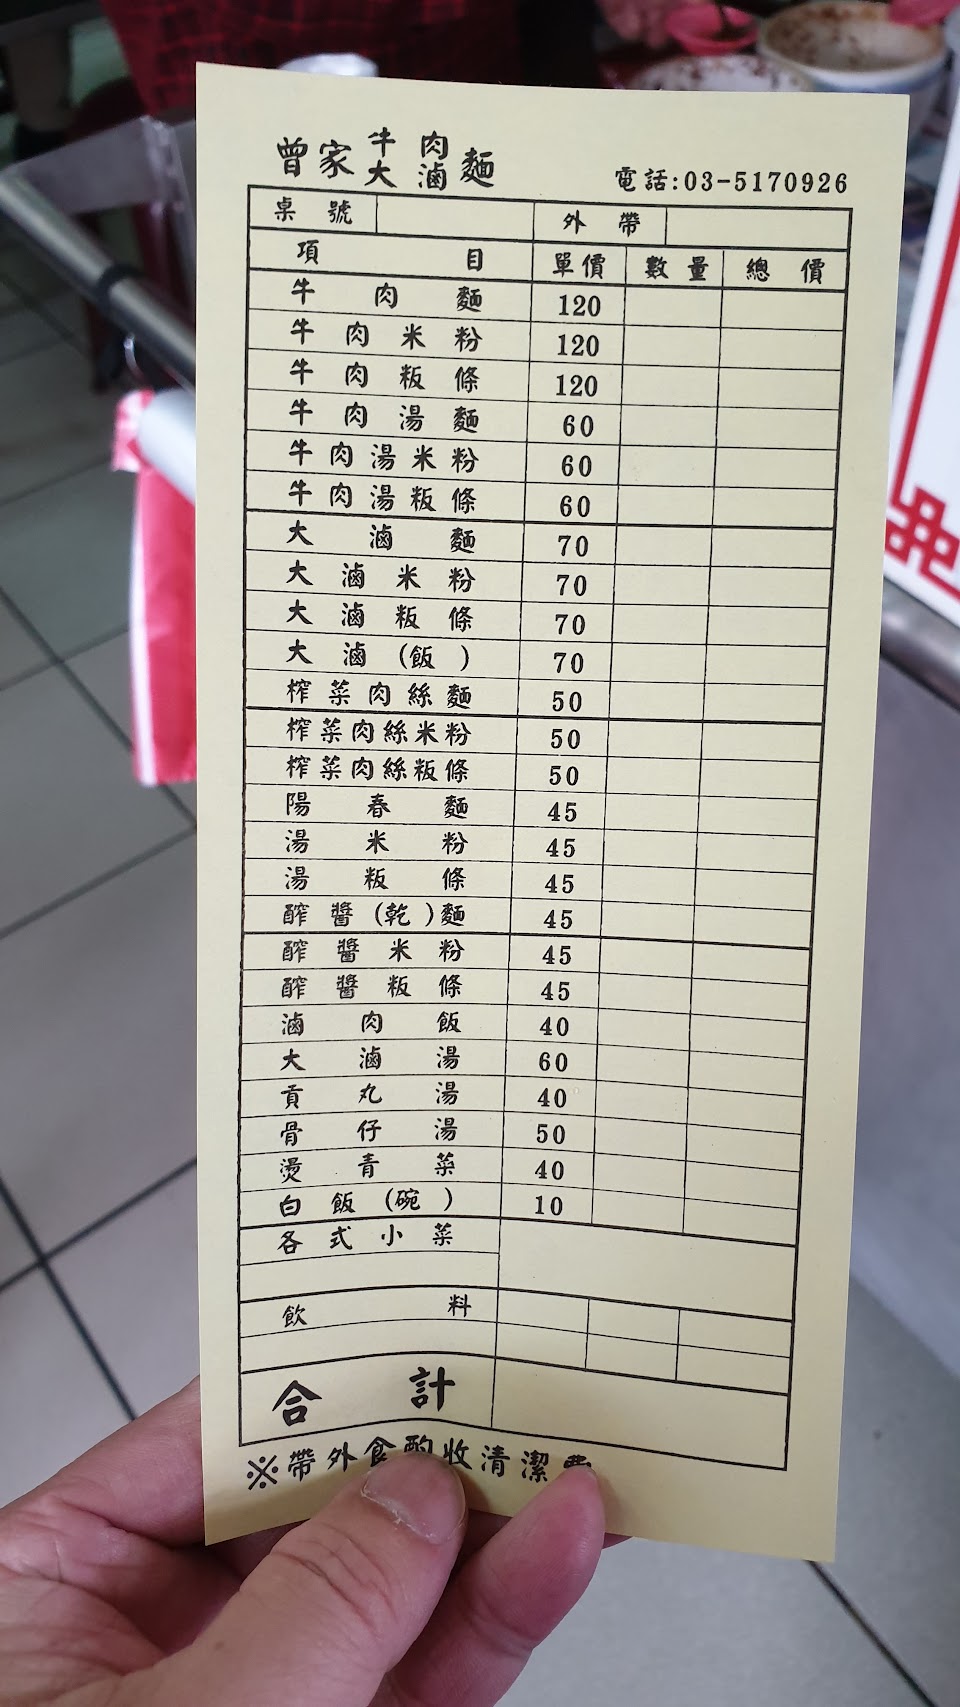 曾家牛肉大滷麵 電話:03-5170926
桌號 外帶
項目 單價 數量 總價
牛肉麵 120
牛肉米粉 120
牛肉粄條 120
牛肉湯麵 60
牛肉湯米粉 60
牛肉湯粄條 60
大滷麵 70
大滷米粉 70
大滷粄條 70
大滷(飯) 70
榨菜肉絲麵 50
榨菜肉絲米粉 50
榨菜肉絲粄條 50
陽春麵 45
湯米粉 45
湯粄條 45
醡醬(乾)麵 45
醡醬米粉 45
醡醬粄條 45
滷肉飯 40
大滷湯 60
貢丸湯 40
骨仔湯 50
燙青菜 40
白飯(碗) 10
各式小菜
飲料
合計
※帶外食酌收清潔費